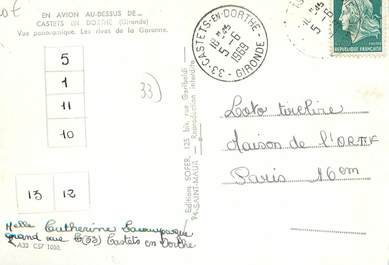 EN AVION AU-DESSUS DE...
CASTETS EN DORTHE (Gironde)
Vue panoramique. Les rives de la Garonne.
5
1
11
10
13 12
33)
Editions SOFER, 125 bis, rue Garibaldi
94-SAINT-MAUR — Reproduction interdite
33-CASTETS-EN-DORTHE
5-6
1969
GIRONDE
REPUBLIQUE FRANÇAISE
Loto tirelire
Maison de l'ORTF
Paris 16em
Melle Catherine
grand rue (33) Castets en Dorthe
A33 C57 1000.